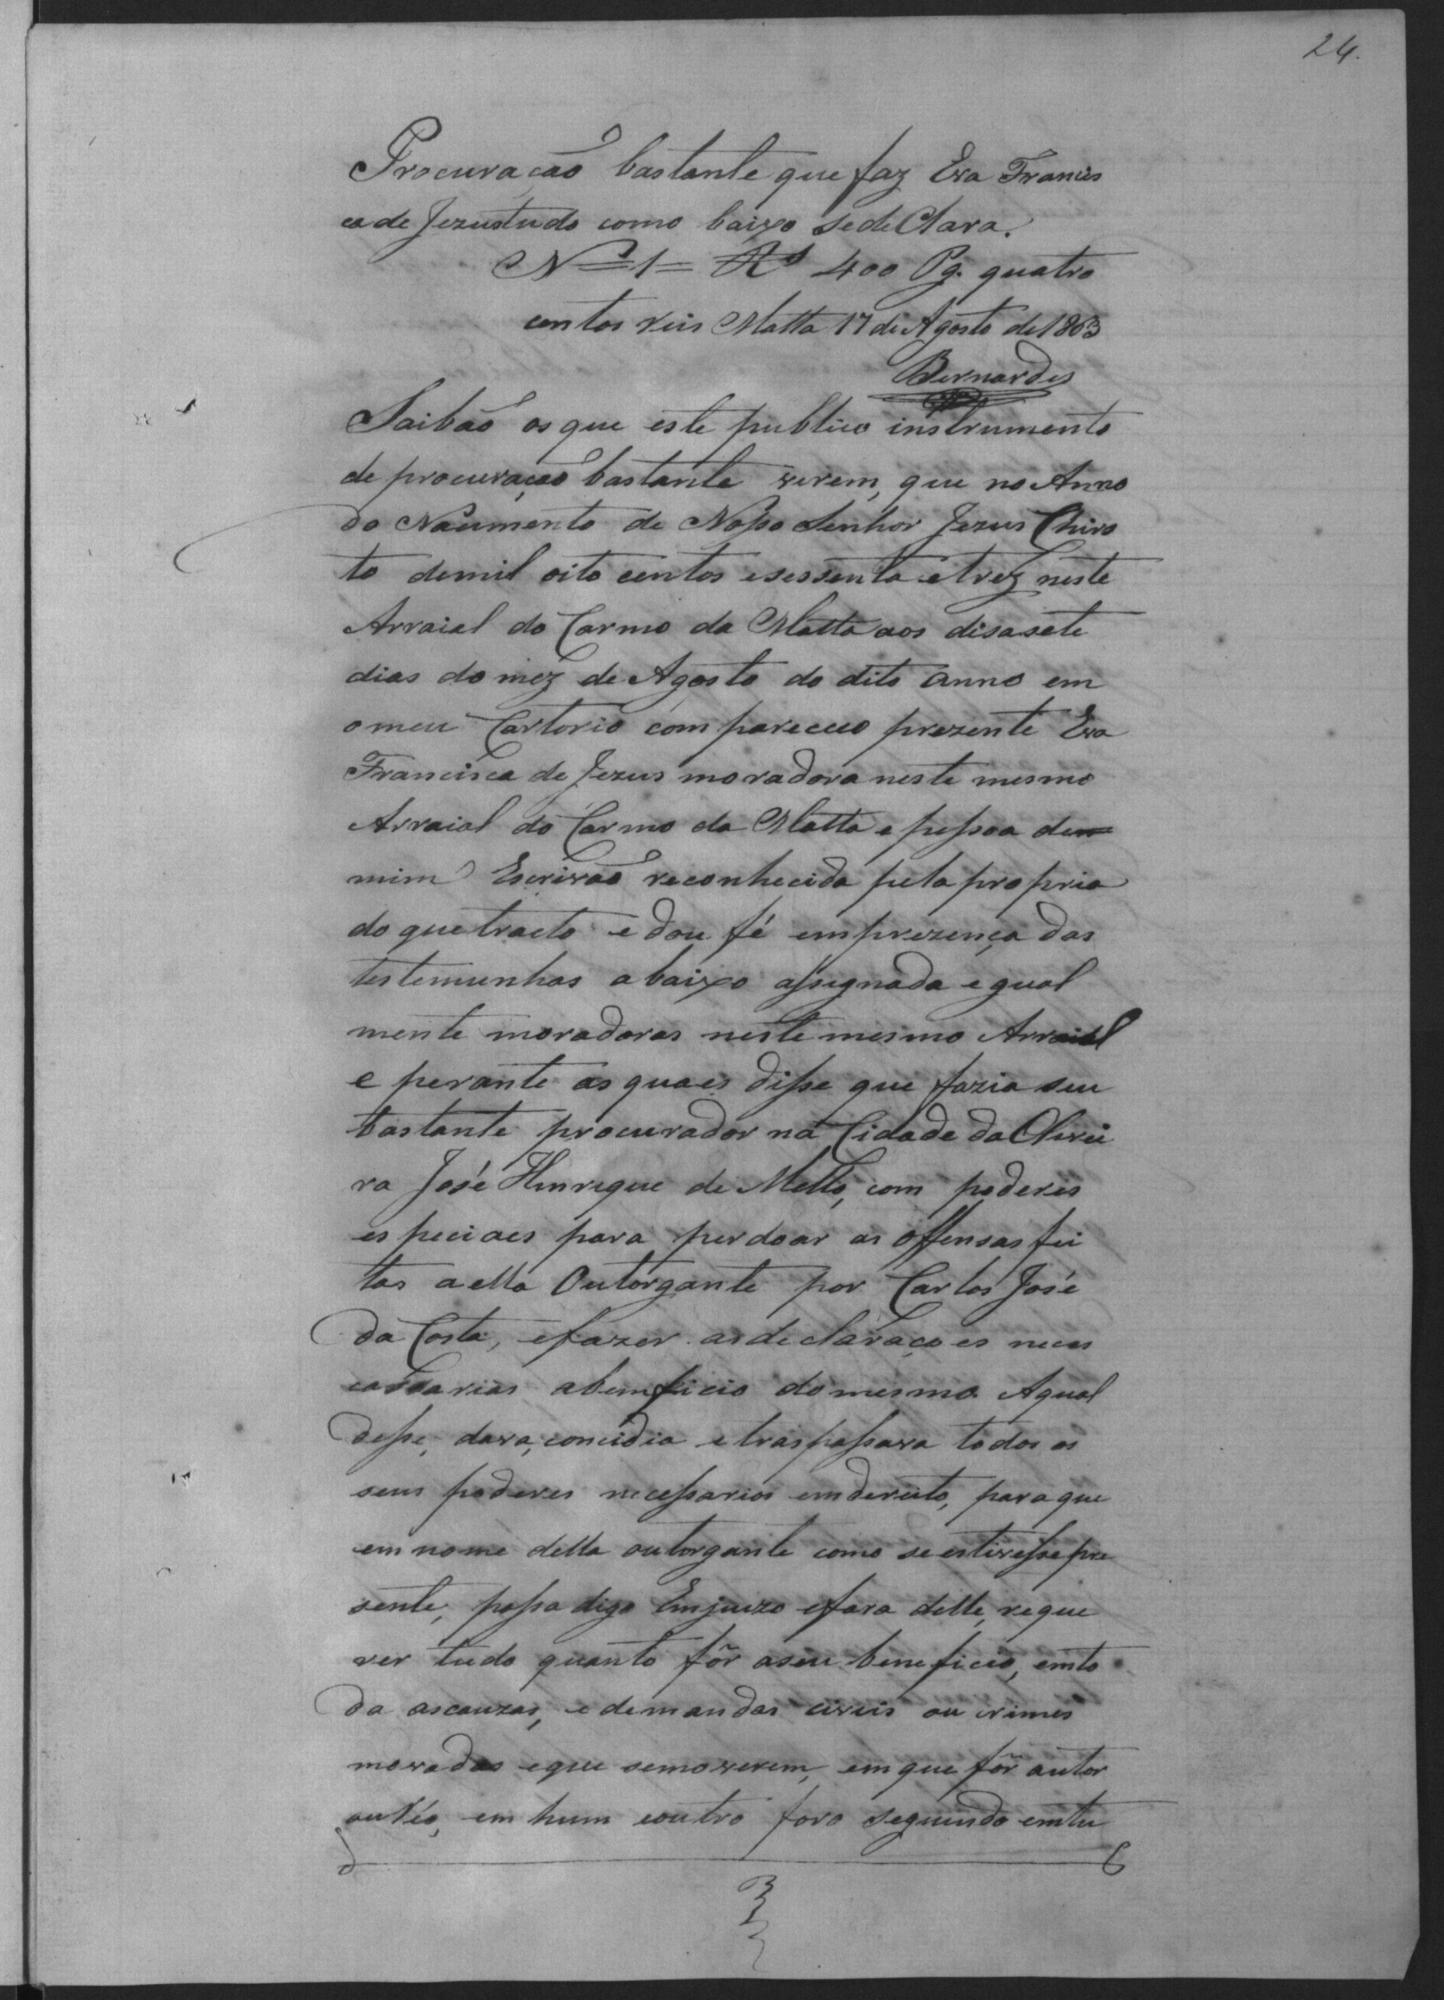 24.
Procuração bastante que faz Eva Francis
ca de Jezus tudo como baixo se de Clara.
Nº 1 = Rs 400 Pg. quatro
centos reis Matta 17 de Agosto de 1863
Bernardes
Saibão os que este publico instrumento
de procuração bastante virem, que no Anno
do Nacimento de Nosso Senhor Jezus Chris
to de mil oito centos e sessenta e trez neste
Arraial do Carmo da Matta aos disasete
dias do mez de Agosto do dito anno em
o meu Cartorio compareceo prezente Eva
Francisca de Jezus moradora neste mesmo
Arraial do Carmo da Matta e pessoa de
mim Escrivão reconhecida pela propria
do que tracto e dou fé em prezença das
testemunhas abaixo assignada egual
mente moradoras neste mesmo Arraial
e perante as quaes disse que fazia seu
bastante procurador na Cidade da Olivei
ra José Henrique de Mello, com poderes
especiaes para perdoar as offensas fei
tas a ella Outorgante por Carlos José
da Costa, e fazer as declaraçoes neces
cassarias a beneficio do mesmo. A qual
desse, dava, concidia e traspassava todos os
seus poderes necessarios em dereito, para que
em nome della outorgante como se estivesse pre
sente, possa digo Em juizo e fora delle, reque
rer tudo quanto fôr a seu beneficio, em to
da as cauzas, e demandas civeis ou crimes
movadas e que se moverem, em que fôr autor
ou réo, em hum e outro foro seguindo em tu